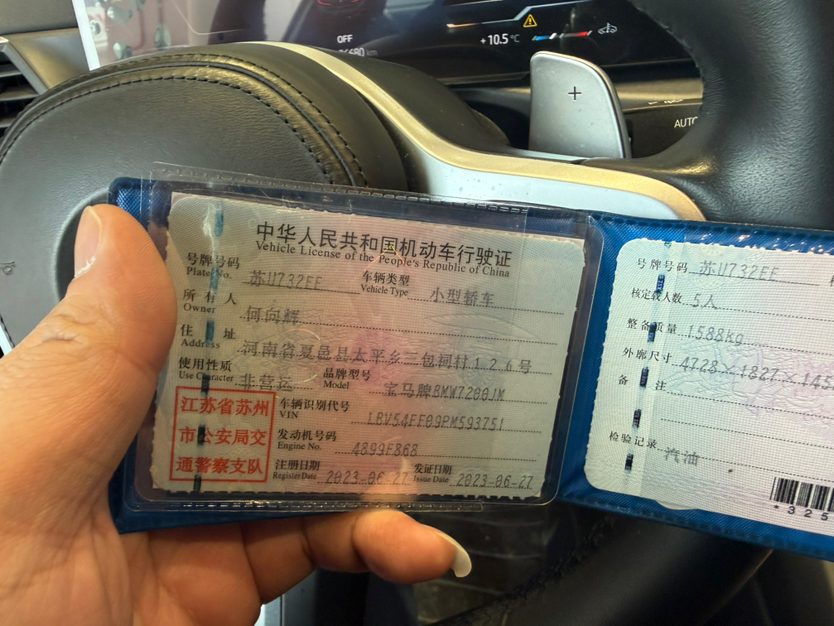 OFF
6680 km
+10.5 °C
+
AUTO
中华人民共和国机动车行驶证
Vehicle License of the People's Republic of China
号牌号码 苏U732EE 车辆类型 小型轿车
Plate No. Vehicle Type
所有人 何向辉
Owner
住址 河南省夏邑县太平乡三包祠村126号
Address
使用性质 非营运 品牌型号 宝马牌BMW7200JM
Use Character Model
江苏省苏州
市公安局交
通警察支队
车辆识别代号
VIN
发动机号码 4899F868
Engine No.
注册日期 2023-06-27 发证日期 2023-06-27
Register Date Issue Date
号牌号码 苏U732EE
核定载人数 5人
整备质量 1588kg
外廓尺寸 4728×1827×145
备注
检验记录 汽油
*325